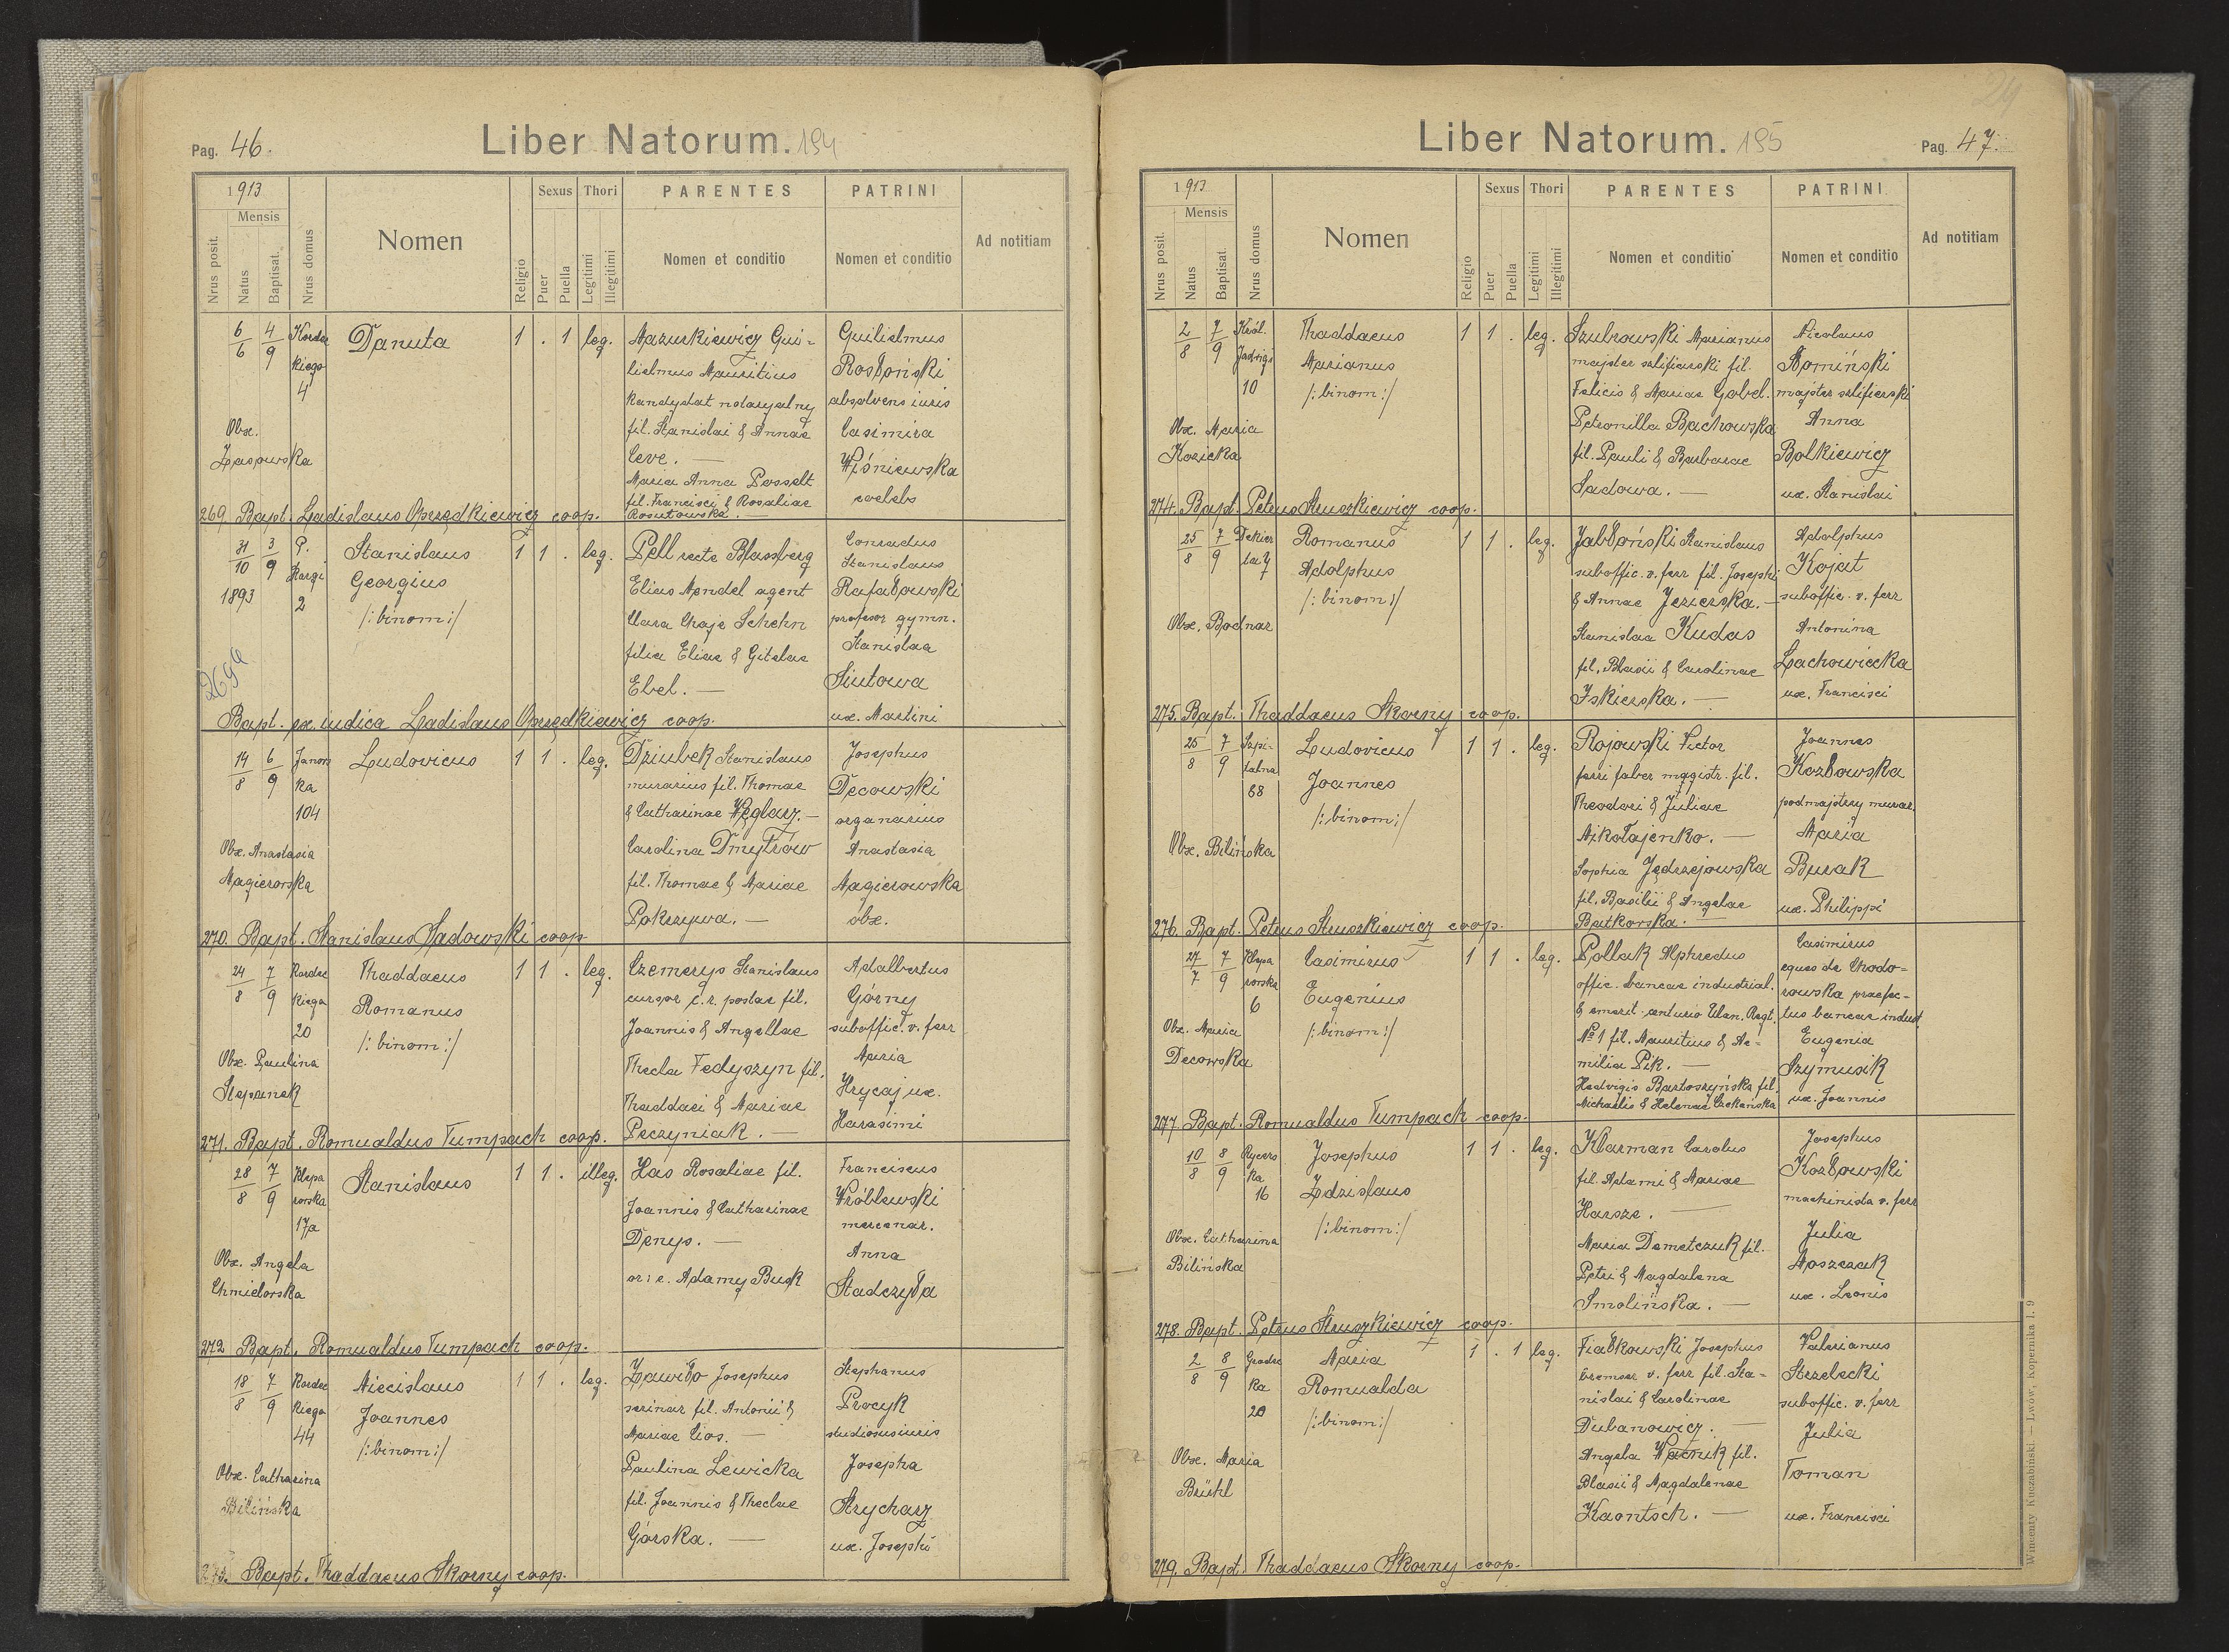 Pag. 46.
Liber Natorum. 194
1913
Mensis
Sexus
Thori
PARENTES
PATRINI
Nrus posit.
Natus
Baptisat.
Nrus domus
Nomen
Religio
Puer
Puella
Legitimi
Illegitimi
Nomen et conditio
Nomen et conditio
Ad notitiam
6/6 4/9 Kordec
kiego
4
Danuta
1 . 1 leg.
Mazurkiewicz Gui-
lielmus Mauritius
kandydat notaryalny
fil. Stanislai & Annae
Leve. —
Maria Anna Posselt
fil. Francisci & Rosaliae
Rosutowska.
Guilielmus
Rosłoński
absolvens iuris
Casimira
Wiśniewska
coelebs
Obx.
Zasowska
269 Bapt. Ladislaus Oprzędkiewicz coop.
31/10 3/9 P.
1893
Kargi
2
Stanislaus
Georgius
/:binom:/
1 1 . leg.
Pell recte Blassberg
Elias Mendel agent
Clara Chaje Schehn
filia Eliae & Gitelae
Ebel. —
Conradus
Stanislaus
Rafałowski
profesor gymn.
Stanislaa
Siutowa
ux. Martini
269a
Bapt. ex iudica Ladislaus Oprzędkiewicz coop.
14/8 6/9 Janow
ka
104
Ludovicus
1 1 . leg.
Dziubek Stanislaus
murarius fil. Thomae
& Catharinae Węglarz. —
Carolina Dmytrow
fil. Thomae & Mariae
Pokrzywa. —
Josephus
Decowski
organarius
Anastasia
Magierowska
obx.
Obx. Anastasia
Magierowska
270. Bapt. Stanislaus Sadowski coop.
24/8 7/9 Kordec
kiego
20
Thaddaeus
Romanus
/:binom:/
1 1 . leg.
Czemerys Stanislaus
cursor c. r. postae fil.
Joannis & Angellae
Thecla Fedyszyn fil.
Thaddaei & Mariae
Peczyniak. —
Adalbertus
Górny
suboffic. v. ferr
Maria
Hrycaj ux.
Harasimi
Obx. Paulina
Stepanek
271. Bapt. Romualdus Tumpach coop.
28/8 7/9 Klepa
rowska
17a
Stanislaus
1 1 . illeg.
Has Rosaliae fil.
Joannis & Catharinae
Denys. —
or: e. Adamy Busk
Franciscus
Wróblewski
mercenar.
Anna
Stadczyła
Obx. Angela
Chmielowska
272 Bapt. Romualdus Tumpach coop.
18/8 7/9 Kordec
kiego
44
Miecislaus
Joannes
/:binom:/
1 1 . leg.
Zawiło Josephus
serinar fil. Antonii &
Mariae Cios. —
Paulina Lewicka
fil. Joannis & Theclae
Górska. —
Stephanus
Procyk
studiosus iuris
Josepha
Strycharz
ux. Josephi
Obx. Catharina
Bilińska
273. Bapt. Thaddaeus Skorny coop.
24
Liber Natorum. 195
Pag. 47.
1913
Mensis
Sexus
Thori
PARENTES
PATRINI
Nrus posit.
Natus
Baptisat.
Nrus domus
Nomen
Religio
Puer
Puella
Legitimi
Illegitimi
Nomen et conditio
Nomen et conditio
Ad notitiam
2/8 7/9 Król.
Jadwigi
10
Thaddaeus
Marianus
/:binom:/
1 1 . leg.
Szubrowski Marianus
majster szlifierski fil.
Felicis & Mariae Gobel.
Petronilla Bachowska
fil. Pauli & Barbarae
Sadowa. —
Nicolaus
Romiński
majster szlifierski
Anna
Bolkiewicz
ux. Stanislai
Obx. Maria
Kozicka
274. Bapt. Petrus Struszkiewicz coop.
25/8 7/9 Dekier
ta
7
Romanus
Adolphus
/:binom:/
1 1 . leg.
Jabłoński Stanislaus
suboffic. v. ferr fil. Josephi
& Annae Jezierska. —
Stanislaa Kudas
fil. Blasii & Carolinae
Iskierska. —
Adolphus
Kojat
suboffic. v. ferr
Antonina
Lachowiecka
ux. Francisci
Obx. Bodnar
275. Bapt. Thaddaeus Skorny coop.
25/8 7/9 Szpi-
talna
68
Ludovicus
Joannes
/:binom:/
1 1 . leg.
Rojowski Victor
ferri faber magistr. fil.
Theodori & Juliae
Mikołajenko. —
Sophia Jędrzejowska
fil. Basilii & Angelae
Butkowska. —
Joannes
Kozłowska
podmajstrzy murar.
Maria
Burak
ux. Philippi
Obx. Bilińska
276. Bapt. Petrus Struszkiewicz coop.
27/7 7/9 Klepa
rowska
6
Casimirus
Eugenius
/:binom:/
1 1 . leg.
Pollak Alphredus
offic. bancae industrial.
& emerit. centurio Ulan. Regt.
No 1 fil. Mauritius & Ae-
milia Pik. —
Hedvigis Bartoszyńska fil.
Michaelis & Helenae Czekańska
Casimirus
eques de Chodo-
rowska praefec-
tus bancae indust.
Eugenia
Szymusik
ux. Joannis
Obx. Maria
Decowska
277. Bapt. Romualdus Tumpach coop.
10/8 8/9 Rycers
ka
16
Josephus
Zdzislaus
/:binom:/
1 1 . leg.
Klarman Carolus
fil. Adami & Mariae
Harsze. —
Maria Demetczuk fil.
Petri & Magdalena
Smolińska. —
Josephus
Kozłowski
machinista v. ferr
Julia
Moszczak
ux. Leonis
Obx. Catharina
Bilińska
278. Bapt. Petrus Struszkiewicz coop.
2/8 8/9 Grodec
ka
20
Maria
Romualda
/:binom:/
1 . 1 leg.
Fiałkowski Josephus
bremser v. ferr fil. Sta-
nislai & Carolinae
Dubanowicz. —
Angela Wacnik fil.
Blasii & Magdalenae
Kaontsch. —
Valerianus
Strzelecki
suboffic. v. ferr
Julia
Toman
ux. Francisci
Obx. Maria
Brühl
279. Bapt. Thaddaeus Skorny coop.
Wincenty Kuczabiński — Lwów, Kopernika l. 9